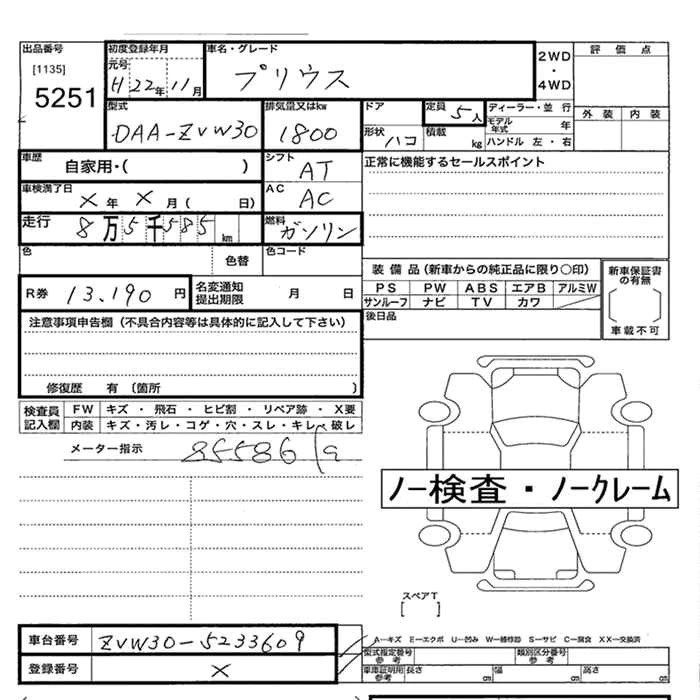 出品番号 初度登録年月 車名・グレード 2WD・4WD 評価点
[1135] 元号
5251 H 22年 11月 プリウス
型式 排気量又はkw ドア 定員 5人 ディーラー・並行 外装 内装
DAA-ZVW30 1800 形状 ハコ 積載 kg モデル年式 年
ハンドル 左・右
車歴 自家用・( ) シフト AT 正常に機能するセールスポイント
車検満了日 X年 X月( 日) AC AC
走行 8万5千585 km 燃料 ガソリン
色 色替 色コード
装備品(新車からの純正品に限り○印) 新車保証書の有無
R券 13,190 円 名変通知提出期限 月 日 PS PW ABS エアB アルミW
サンルーフ ナビ TV カワ
注意事項申告欄(不具合内容等は具体的に記入して下さい) 後日品 車載不可
修復歴 有〔箇所 〕
検査員記入欄 FW キズ・飛石・ヒビ割・リペア跡・X要
内装 キズ・汚レ・コゲ・穴・スレ・キレ・破レ
メーター指示 85586
ノー検査・ノークレーム
スペアT
[ ]
車台番号 ZVW30-5233609
A―キズ E―エクボ U―凹み W―補修跡 S―サビ C―腐食 XX―交換済
型式指定番号 参考 類別区分番号 参考
登録番号 X 車庫証明用 参考 長さ cm 幅 cm 高さ cm